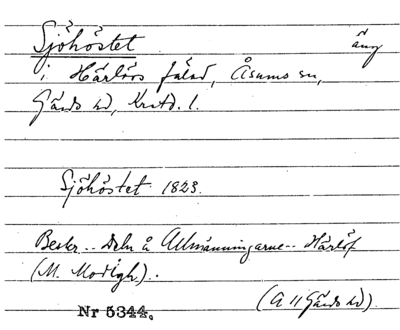 Sjöhöstet äng
i Härlövs fälad, Åsums sn,
Gärds hd, Kristd. l.
Sjöhöstet 1823.
Beskr.. Deln å Allmänningarne.. Härlöf
(M. Modigh)..
(A 11 Gärds hd).
Nr 5344.